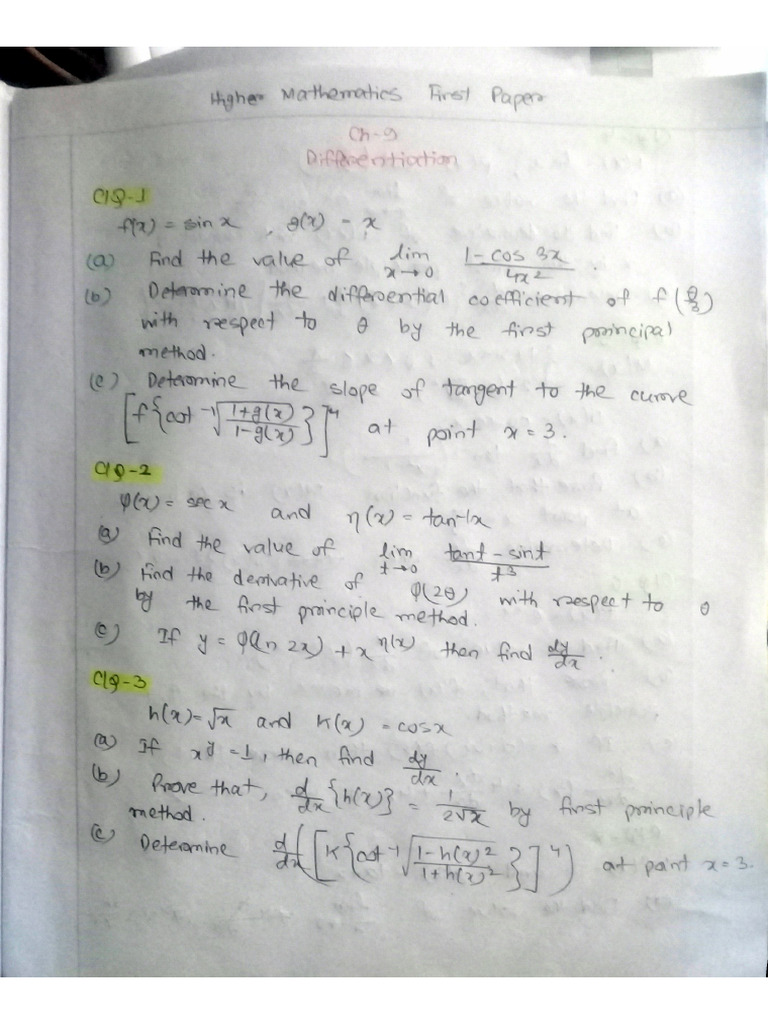 Higher Mathematics First Paper
Ch-9
Differentiation
CQ-1
f(x) = sin x , g(x) = x
(a) Find the value of lim x→0 (1 - cos 3x)/(4x²) .
(b) Determine the differential coefficient of f(θ/3)
with respect to θ by the first principal
method.
(c) Determine the slope of tangent to the curve
[f{cot⁻¹√((1+g(x))/(1-g(x)))}]⁴ at point x = 3.
CQ-2
φ(x) = sec x and η(x) = tan⁻¹x
(a) Find the value of lim t→0 (tant - sint)/t³
(b) Find the derivative of φ(2θ) with respect to θ
by the first principle method.
(c) If y = φ(ln 2x) + x^η(x) then find dy/dx .
CQ-3
h(x) = √x and k(x) = cosx
(a) If x^y = 1, then find dy/dx .
(b) Prove that, d/dx {h(x)} = 1/(2√x) by first principle
method.
(c) Determine d/dx ([k{cot⁻¹√((1-h(x)²)/(1+h(x)²))}]⁴) at point x = 3.